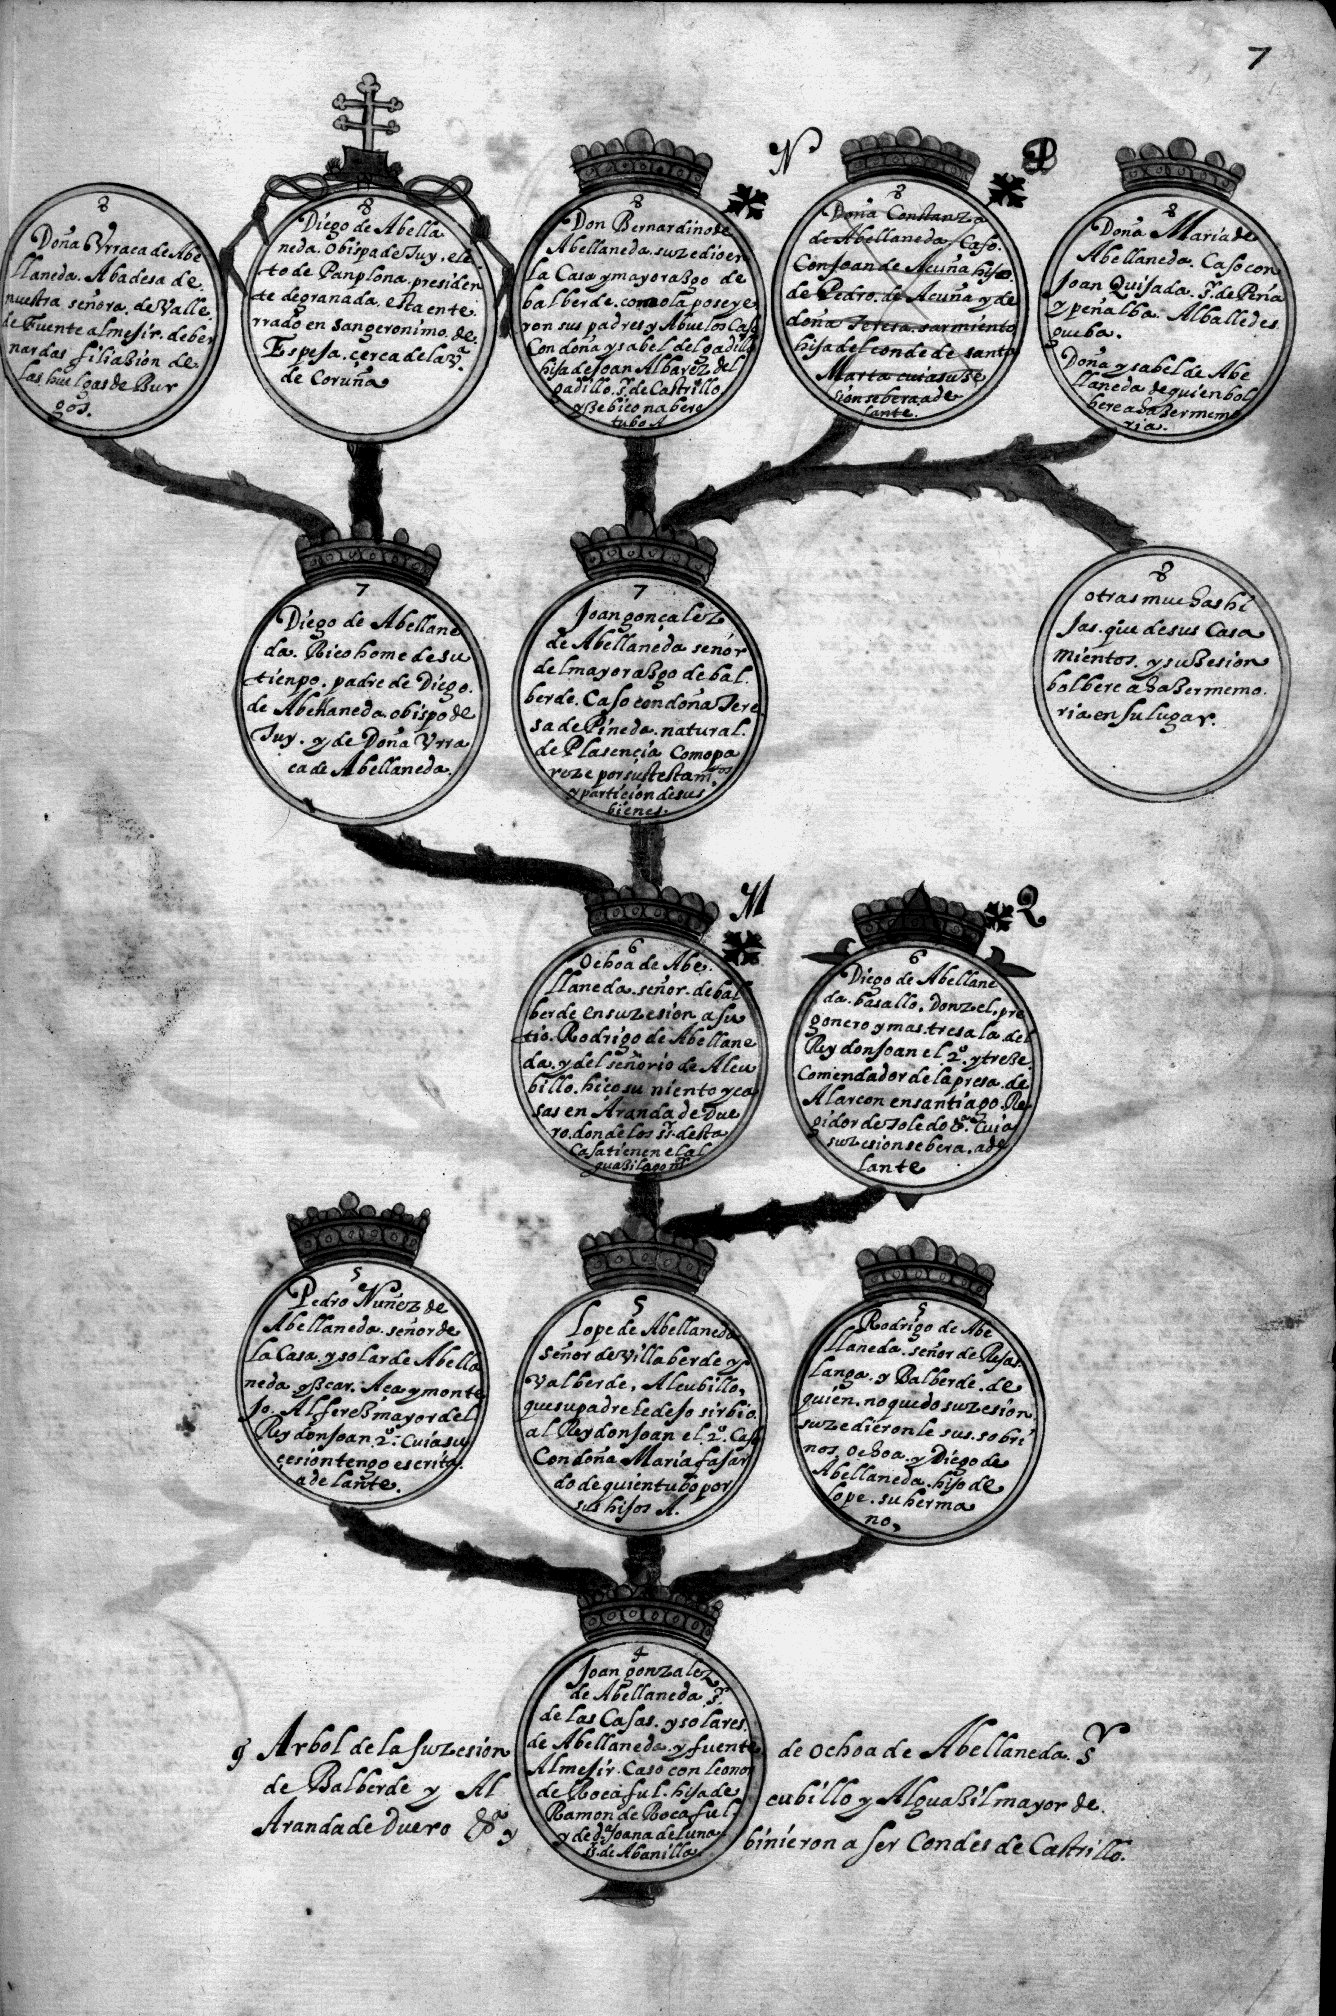 7
8
Doña Vrraca de Abe
llaneda. Abadesa de
nuestra señora. de Valle.
de Fuente almesir. de ber
nardas filiasion de
las huelgas de Bur
gos.
8
Diego de Abella
neda. obispo de Tuy. ele
to de Panplona. presiden
te de granada. esta ente
rrado en san geronimo. de
Espeja. çerca de la Vª
de Coruña
N
8
Don Bernardino de
Abellaneda. suzedio en
la Casa y mayorasgo de
balberde. como la poseye
ron sus padres y Abuelos Caso
Con doña ysabel delgadillo
hija de Joan Albarez del
gadillo. sr. de Castrillo
tubo A
8
Doña Constanza
de Abellaneda. Caso.
Con Joan de Acuña hijo
de Pedro. de Acuña y de
doña Teresa. sarmiento
hija del conde de santa
Marta cuia suze
sion se bera ade
lante.
8
Doña Maria de
Abellaneda. Caso con
Joan Quijada. sr. de Peña
y peñalba.
gueba.
Doña ysabel de Abe
llaneda de quien bol
bere a haser memo
ria.
7
Diego de Abellane
da. Rico home de su
tienpo. padre de Diego.
de Abellaneda. obispo de
Tuy. y de Doña Vrra
ca de Abellaneda.
7
Joan gonçalez
de Abellaneda señor
del mayorasgo de bal.
berde. Caso con doña Tere
sa de Pineda. natural.
de Plasençia Como pa
reze por sus testamtos
y particion de sus
bienes.
8
otras muchas hi
Jas. que de sus Casa
mientos. y suzesion
bolbere a haser memo.
ria en su lugar.
M
6
Ochoa de Abe.
llaneda. señor. de bal
berde en suzesion a su
tio. Rodrigo de Abellane
da. y del señorio de Alcu
billo. hiço su
sas en Aranda de Due
ro. donde los srs. desta
Casa tienen el al
Q
6
Diego de Abellane
da. basallo. Donzel. pre
gonero y mastresala. del
Rey don Joan el. 2º. y treze.
Comendador de la presa. de
Alarcon en santiago. Re
gidor de Toledo &ª. Cuia
suzesion se bera. ade
lante
5
Pedro Nuñez de
Abellaneda. señor de
la Casa. y solar de Abella
neda. yscar. Aça y monte
Jo. Alferez mayor del
Rey don Joan. 2º. Cuia su
çesion tengo escrita.
adelante.
5
Lope de Abellaneda
señor de Villaberde y
Valberde, Alcubillo,
que su padre le dejo sirbio.
al Rey don Joan el. 2º. Caso
Con doña Maria fajar
do de quien tubo por
sus hijos A.
5
Rodrigo de Abe
llaneda. señor de Rejas.
Langa. y Balberde. de
quien. no quedo suzesion
suzedieronle sus. sobri
nos. ochoa. y Diego de
Abellaneda. hijo de
Lope. su herma
no,
4
Joan gonzalez
de Abellaneda sr.
de las Casas. y solares.
de Abellaneda. y fuente
Almesir. Caso con leonor
de Rocaful. hija de
Ramon de Rocaful.
y de dª. Joana de luna.
srs. de Abanilla.
Arbol de la suzesion de ochoa de Abellaneda. sr
de Balberde y Alcubillo y Alguasil mayor de.
Aranda de Duero &ª y binieron a ser Condes de Castrillo.